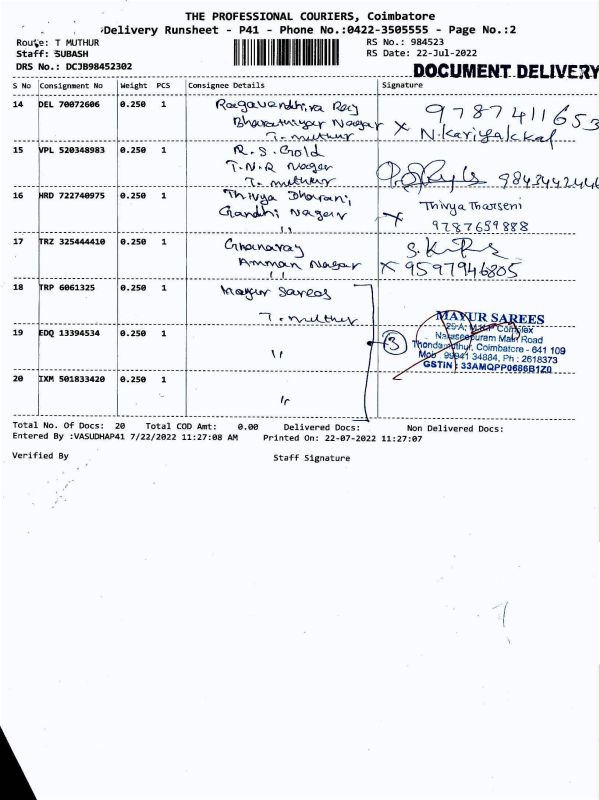 THE PROFESSIONAL COURIERS, Coimbatore
Delivery Runsheet - P41 - Phone No.:0422-3505555 - Page No.:2
Route: T MUTHUR
RS No.: 984523
Staff: SUBASH
RS Date: 22-Jul-2022
DRS No.: DCJB98452302
DOCUMENT DELIVERY
S No Consignment No Weight PCS Consignee Details Signature
14 DEL 70072606 0.250 1 Ragavendhira Raj
Bharathiyar Nagar
T. muthur
9787411653
X N.Kariyakkal
15 VPL 520348983 0.250 1 R.S. Gold
T.N.R Nager
T. muthur
9843442446
16 HRD 722740975 0.250 1 Thivya Dharani,
Gandhi Nagar
11
Thivya Tharseni
X 9787659888
17 TRZ 325444410 0.250 1 Gnanaraj
Amman Nagar
11
X 9597946805
18 TRP 6061325 0.250 1 Mayur Sarees
T. muthur
19 EDQ 13394534 0.250 1
11
3
20 IXM 501833420 0.250 1
11
MAYUR SAREES
25-A, Complex
Naraseepuram Main Road
Thondamuthur, Coimbatore - 641 109
Mob : 99941 34884, Ph : 2618373
GSTIN : 33AMQPP0686B1Z0
Total No. Of Docs: 20 Total COD Amt: 0.00 Delivered Docs: Non Delivered Docs:
Entered By :VASUDHAP41 7/22/2022 11:27:08 AM Printed On: 22-07-2022 11:27:07
Verified By Staff Signature